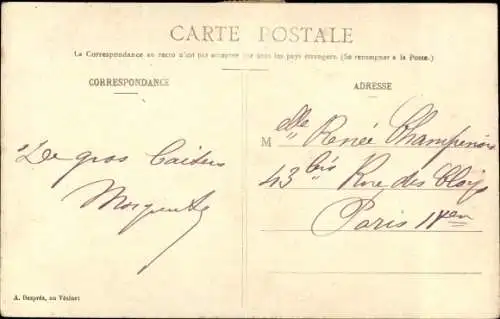 CARTE POSTALE
La Correspondance au recto n'est pas acceptée par tous les pays étrangers. (Se renseigner à la Poste.)
CORRESPONDANCE
ADRESSE
De gros baisers
M elle Renée Champenois
43 bis Rue des Cloÿs
Paris
A. Després, au Vésinet